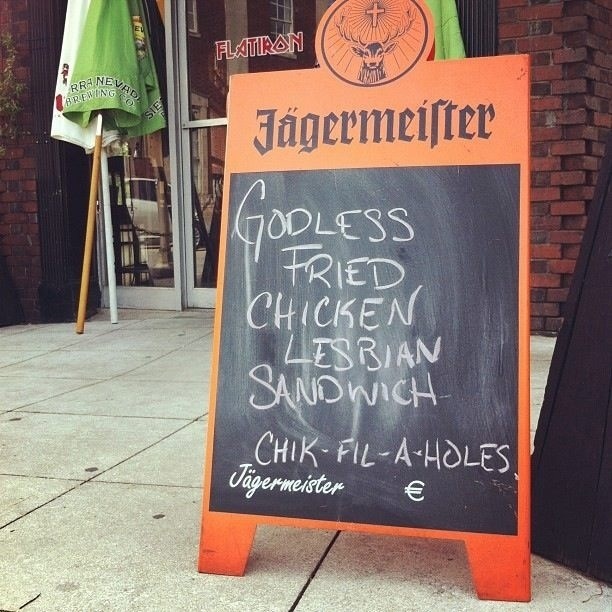 FLATIRON
RRA NEVAD
BREWING CO.
SIE
Jägermeister
GODLESS
FRIED
CHICKEN
LESBIAN
SANDWICH
CHIK-FIL-A-HOLES
Jägermeister €